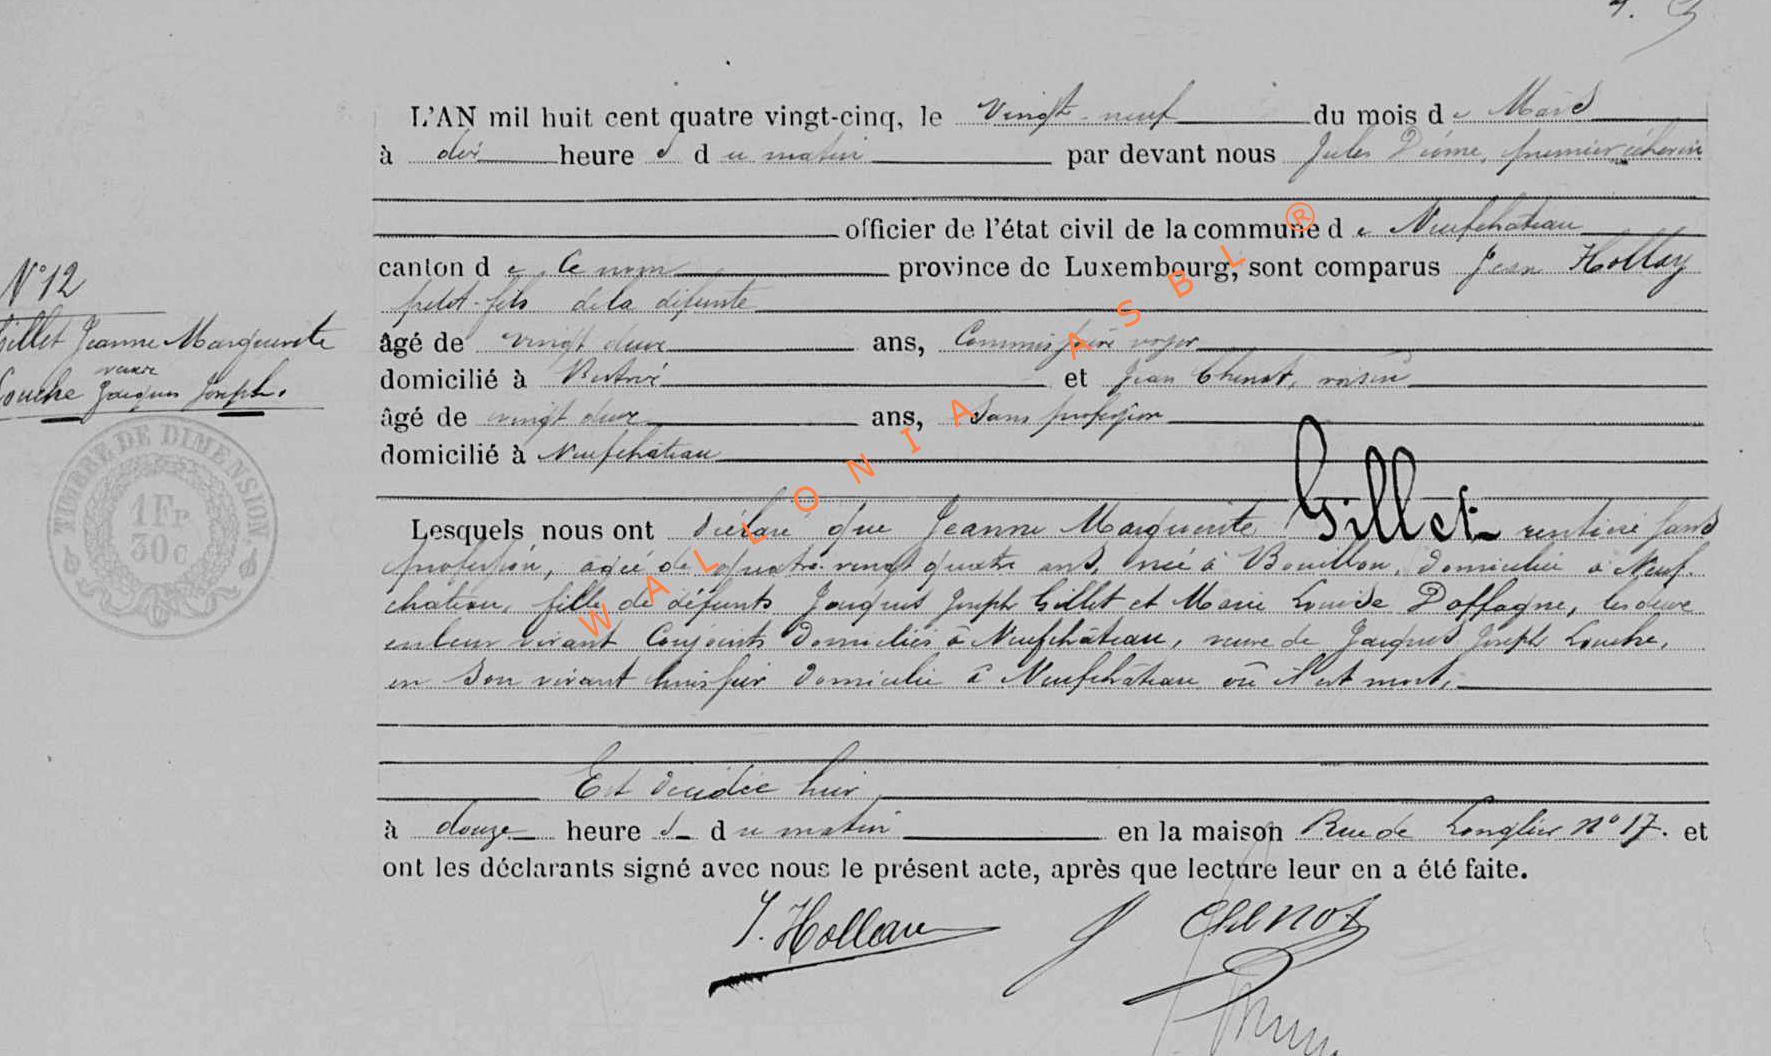 L'AN mil huit cent quatre vingt-cinq, le Vingt-neuf du mois de Mars
à dix heures du matin par devant nous Jules premier échevin
officier de l'état civil de la commune de Neufchâteau
canton de Ce nom province de Luxembourg, sont comparus Jean Hollay
petit-fils de la défunte
N° 12
Gillet Jeanne Marguerite
veuve
Louche Jacques Joseph.
âgé de vingt deux ans, Commissaire voyer
domicilié à Bertrix et Jean Chenot, voisin
âgé de vingt deux ans, Sans profession
domicilié à Neufchâteau
TIMBRE DE DIMENSION.
1 Fr
30 c
Lesquels nous ont déclaré que Jeanne Marguerite Gillet rentière sans
profession, agée de quatre-vingt quatre ans, née à Bouillon, domiciliée à Neuf-
château, fille de défunts Jacques Joseph Gillet et Marie Louise Doffagne, les deux
en leur vivant Conjoints domiciliés à Neufchâteau, veuve de Jacques Joseph Louche,
en son vivant huissier domicilié à Neufchâteau où il est mort,
Est décédée hier
à douze heures du matin en la maison Rue de Longlier n° 17. et
ont les déclarants signé avec nous le présent acte, après que lecture leur en a été faite.
J. Hollay J Chenot
WALLONIA ASBL ®